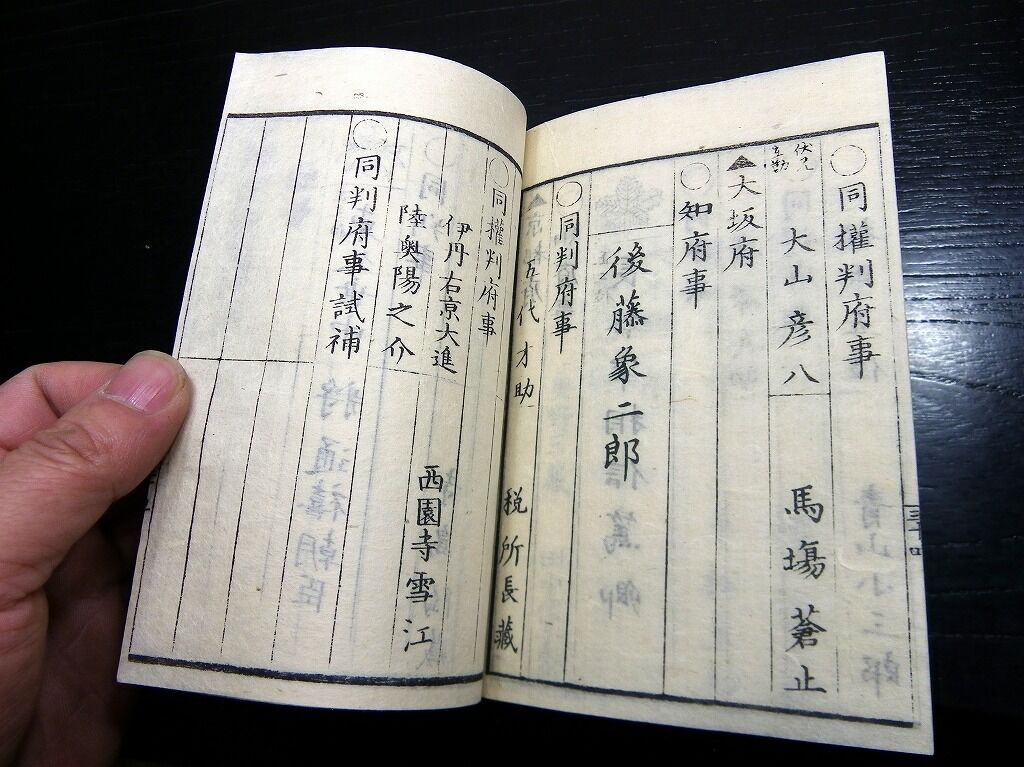 ○同權判府事
伏見
在勤
大山彦八
馬塲蒼止
▲大坂府
○知府事
後藤象二郎
○同判府事
五代才助
税所長藏
○同權判府事
伊丹右京大進
西園寺雪江
陸奥陽之介
○同判府事試補
三十四